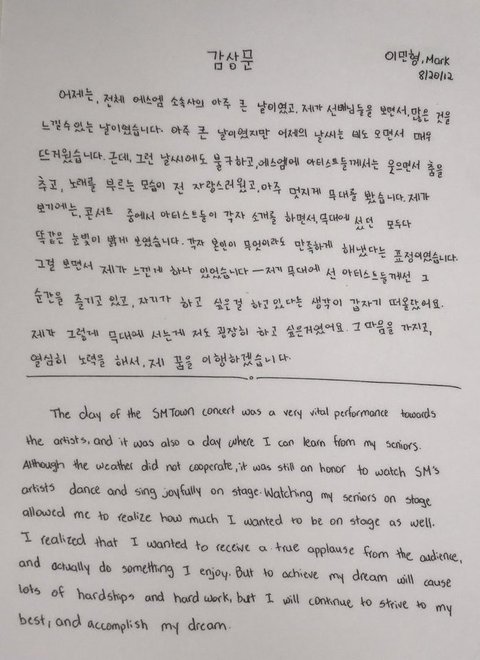 감상문
이민형, Mark
8/20/12
어제는, 전체 에스엠 소속사의 아주 큰 날이였고, 제가 선배님들을 보면서, 많은 것을
느낄수있는 날이였습니다. 아주 큰 날이였지만 어제의 날씨는 비도 오면서 매우
뜨거웠습니다. 근데, 그런 날씨에도 불구하고, 에스엠에 아티스트들께서는 웃으면서 춤을
추고, 노래를 부르는 모습이 전 자랑스러웠고, 아주 멋지게 무대를 봤습니다. 제가
보기에는, 콘서트 중에서 아티스트들이 각자 소개를 하면서, 무대에 섰던 모두다
똑같은 눈빛이 밝게 보였습니다. 각자 본인이 무엇이라도 만족하게 해냈다는 표정이였습니다.
그걸 보면서 제가 느낀게 하나 있었습니다 — 저기 무대에 선 아티스트들께선 그
순간을 즐기고 있고, 자기가 하고 싶은걸 하고있다는 생각이 갑자기 떠올랐어요.
제가 그렇게 무대에 서는게 저도 굉장히 하고 싶은거였어요. 그 마음을 가지고,
열심히 노력을 해서, 제 꿈을 이행하겠습니다.
The day of the SMTown concert was a very vital performance towards
the artists, and it was also a day where I can learn from my seniors.
Although the weather did not cooperate, it was still an honor to watch SM's
artists dance and sing joyfully on stage. Watching my seniors on stage
allowed me to realize how much I wanted to be on stage as well.
I realized that I wanted to receive a true applause from the audience,
and actually do something I enjoy. But to achieve my dream will cause
lots of hardships and hard work, but I will continue to strive to my
best, and accomplish my dream.